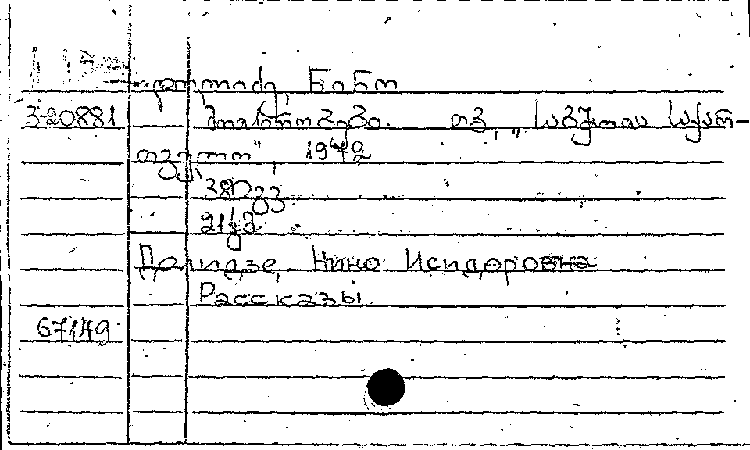 დალიძე, ნინო
320881 მოთხრობები. თბ., „საბჭოთა საქარ-
თველო", 1972
380გვ.
21კ2
Далидзе, Нино Исидоровна
Рассказы.
67149